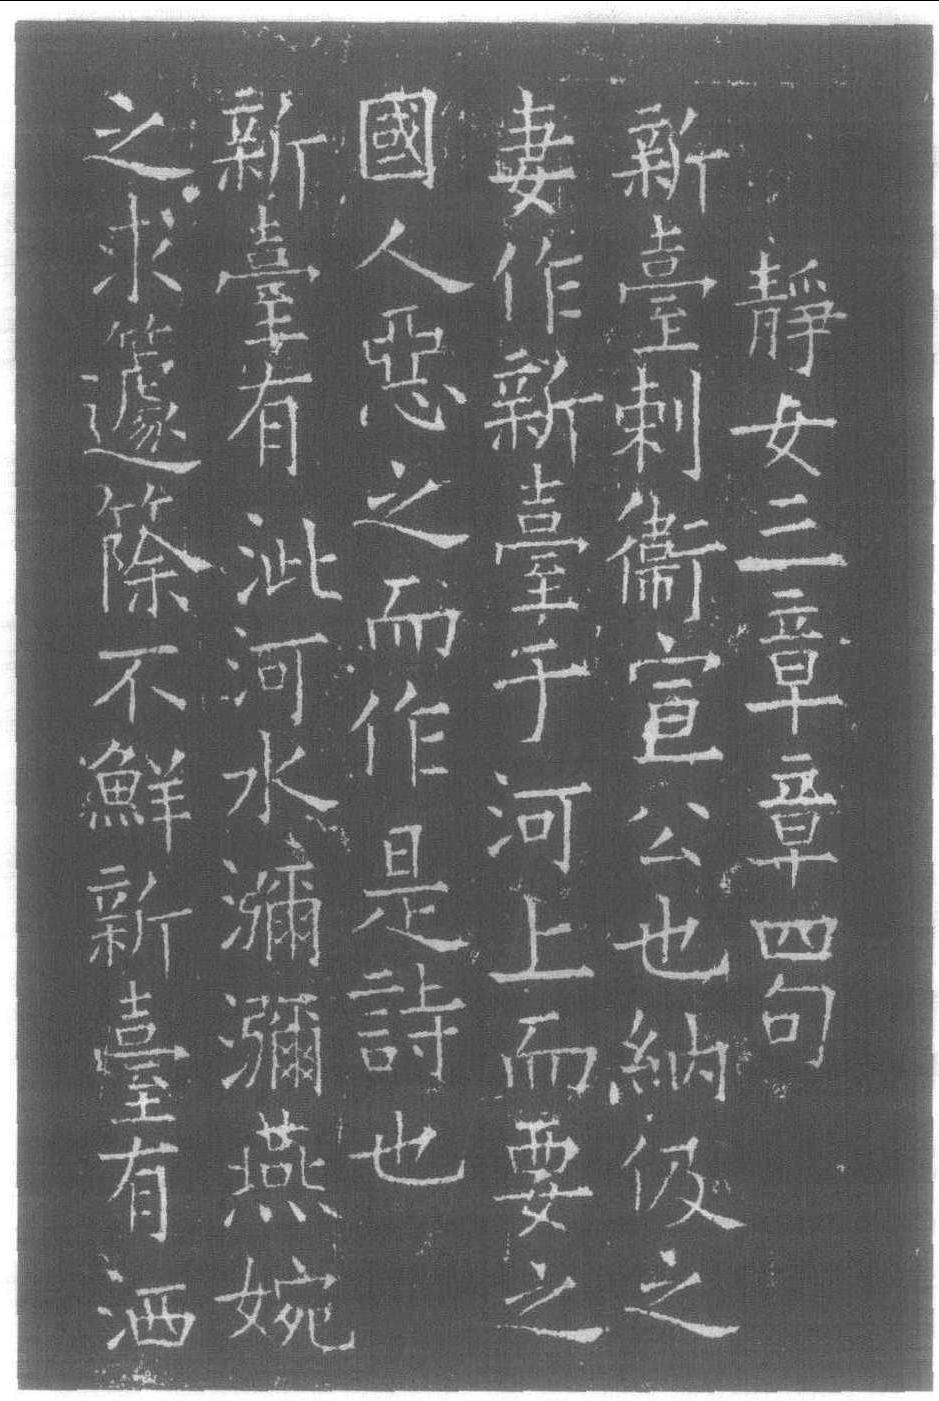 靜女三章章四句
新臺刺衞宣公也納伋之
妻作新臺于河上而要之
國人惡之而作是詩也
新臺有泚河水瀰瀰燕婉
之求籧篨不鮮新臺有洒